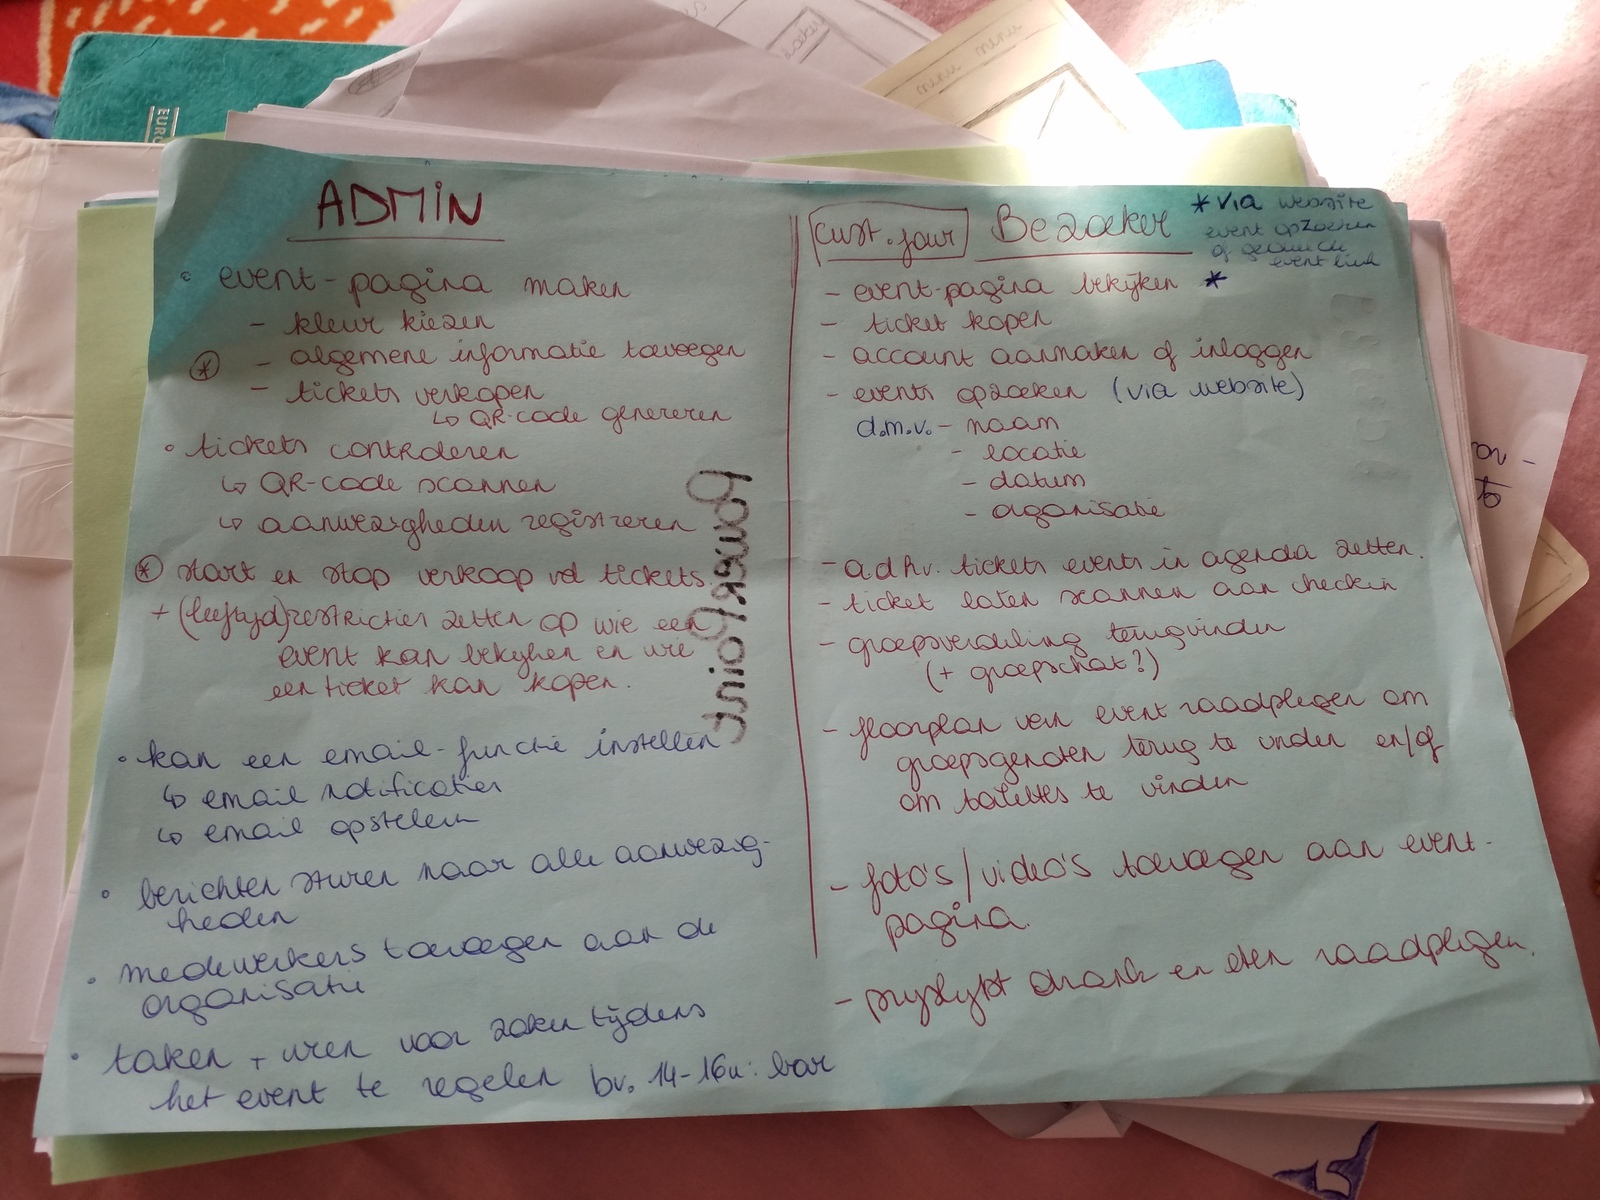 ADMIN
• event-pagina maken
- kleur kiezen
* - algemene informatie toevoegen
- tickets verkopen
↳ QR-code genereren
• tickets controleren
↳ QR-code scannen
↳ aanwezigheden registreren
* start en stop verkoop vd tickets.
+ (leeftijd)restricties zetten op wie een
event kan bekijken en wie
een ticket kan kopen.
• kan een email-functie instellen
↳ email notificaties
↳ email opstellen
• berichten sturen naar alle aanwezig-
heden
• medewerkers toevoegen aan de
organisatie
• taken + uren voor zaken tijdens
het event te regelen bv. 14-16u: bar
PowerPoint
cust. jour Bezoeker
* via website
event opzoeken
of
event link
- event-pagina bekijken *
- ticket kopen
- account aanmaken of inloggen
- events opzoeken (via website)
d.m.v. - naam
- locatie
- datum
- organisatie
- adhv. tickets events in agenda zetten.
- ticket laten scannen aan checkin
- groepsverdeling terugvinden
(+ groepschat?)
- floorplan van event raadplegen om
groepsgenoten terug te vinden en/of
om toilettes te vinden
- foto's/video's toevoegen aan event-
pagina.
- prijslijst drank en eten raadplegen.
EURO
menu menu